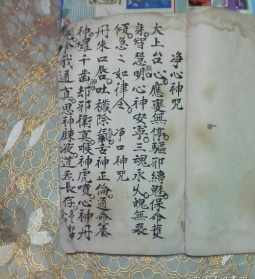 淨心神咒
太上台心應變無停驅邪縛魅保命護
身智慧明心神安寧三魂永久魄無喪
傾急々如律令 淨口神咒
丹朱口唇吐穢除氛舌神正倫通命養
神羅千齒却邪衛真喉神虎噴心神丹
我通真思神煉液道炁長存